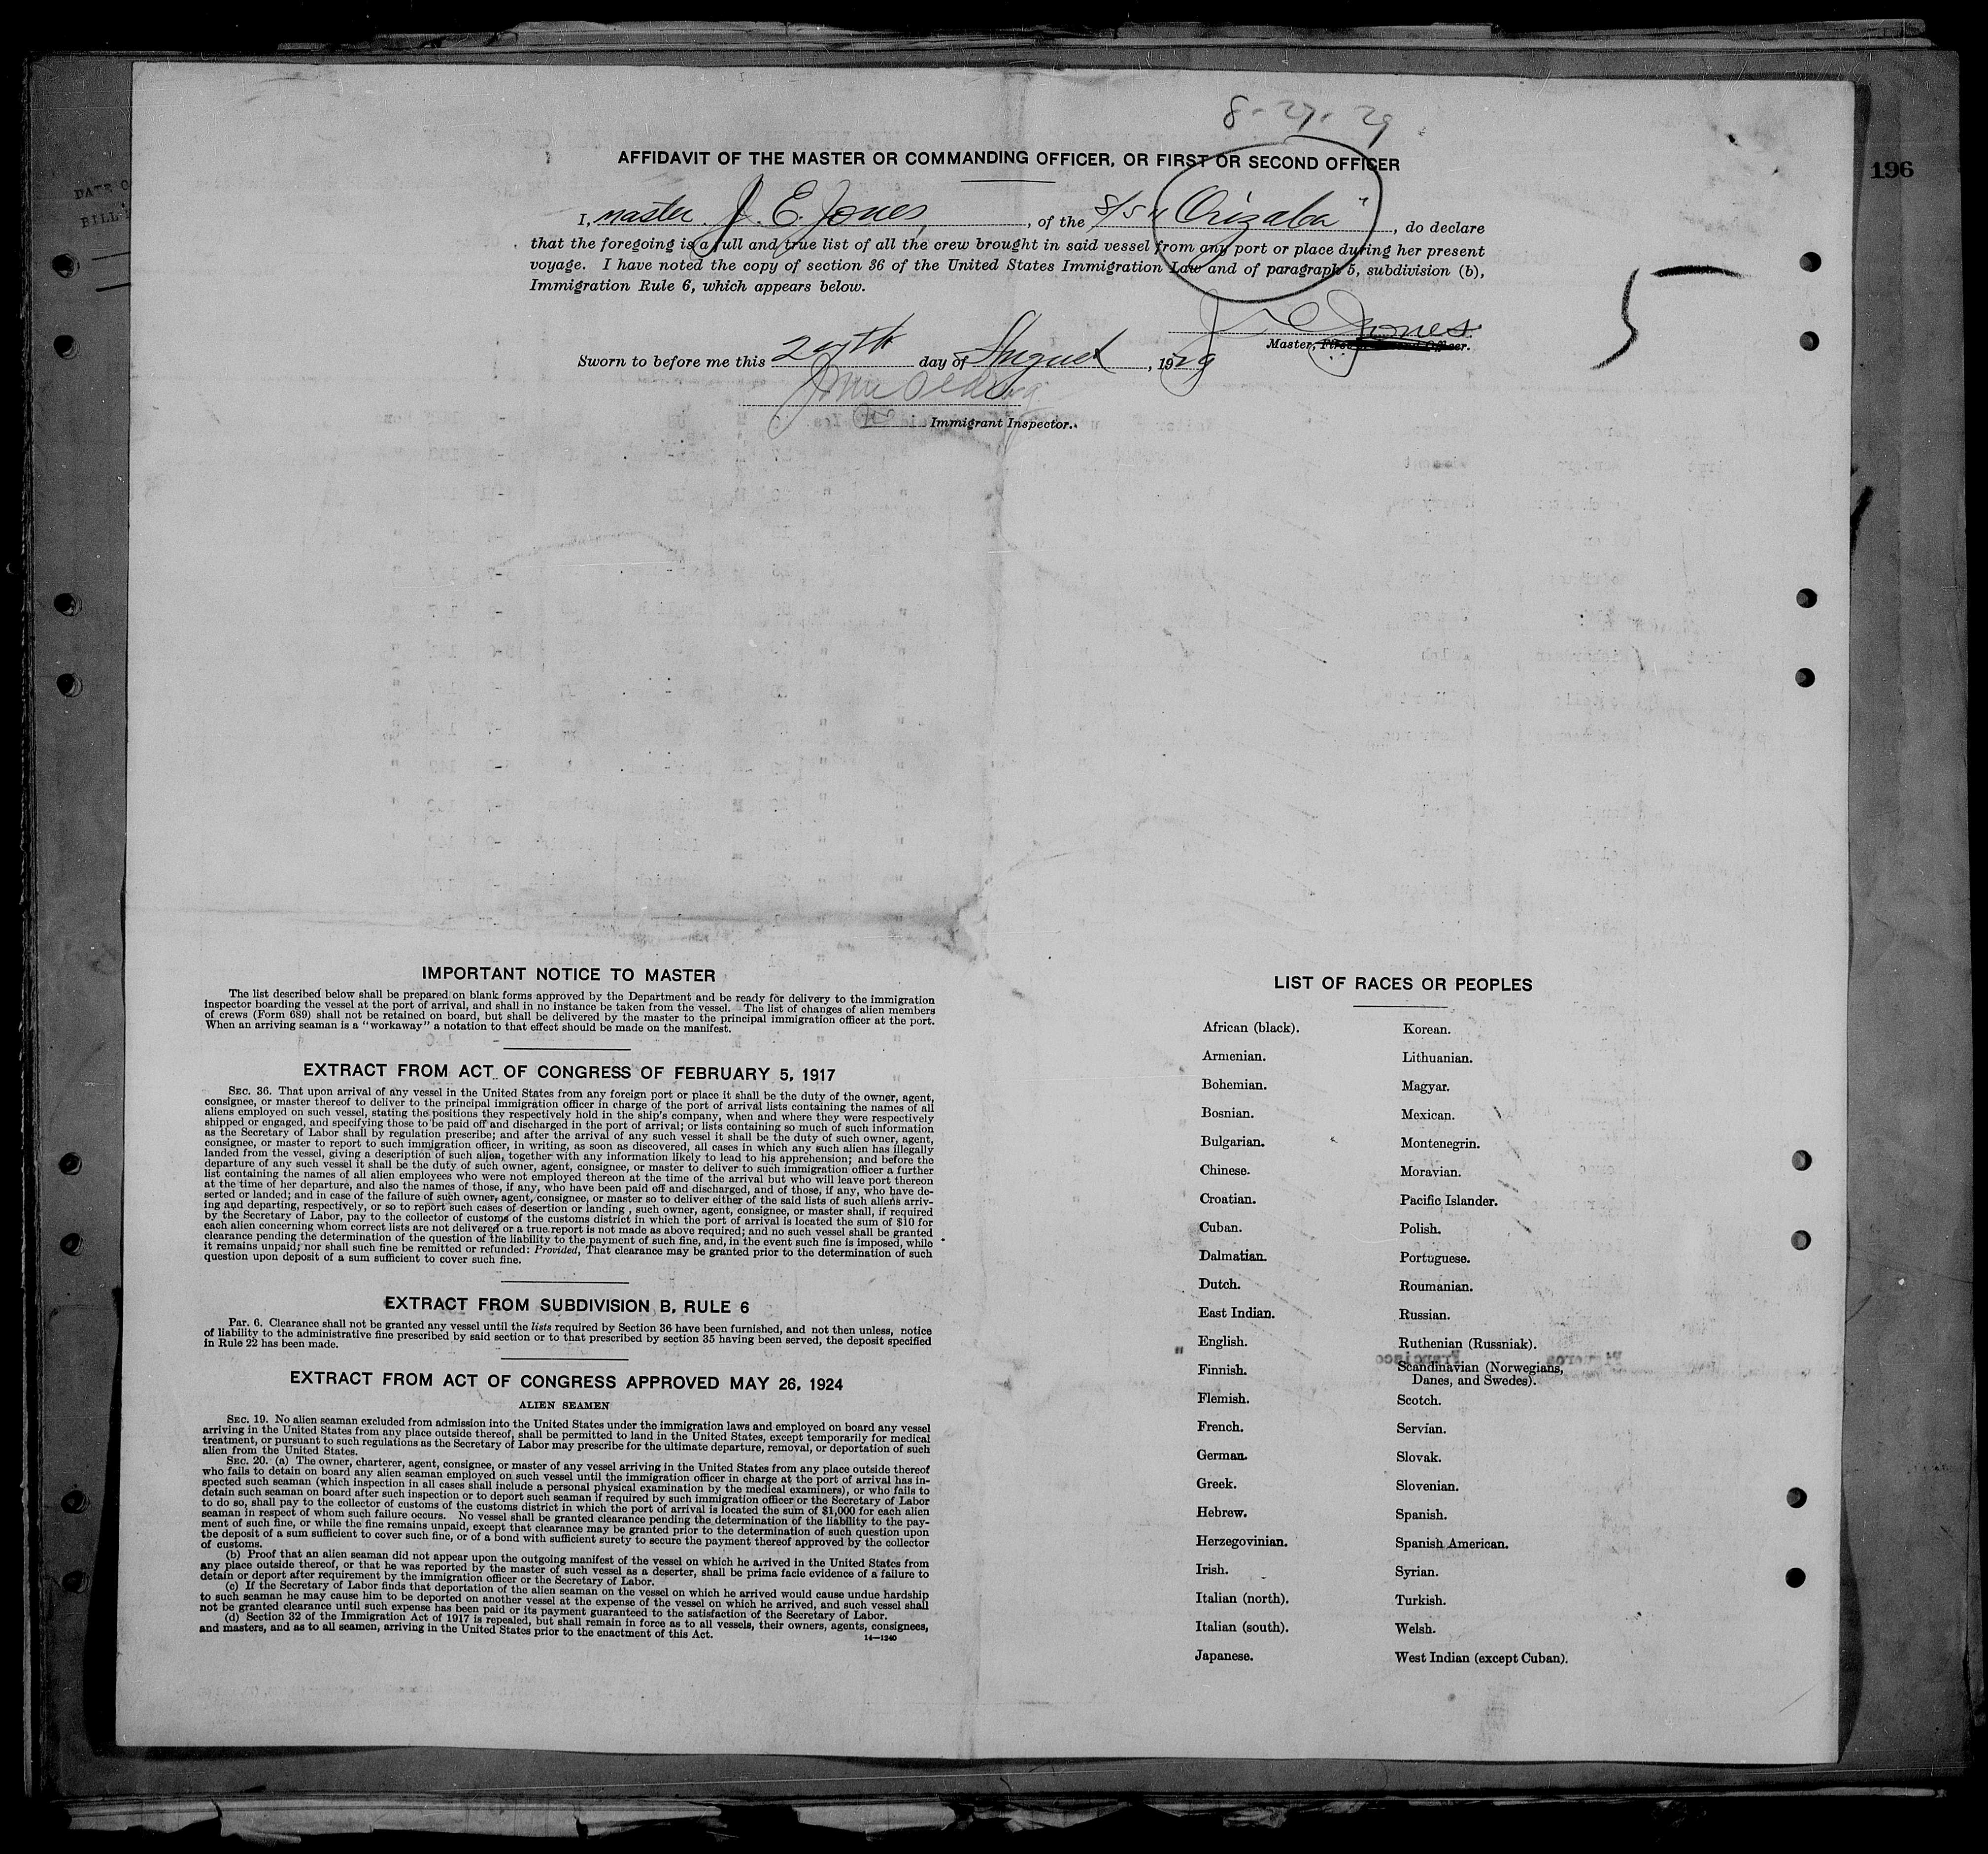 8-27-29
AFFIDAVIT OF THE MASTER OR COMMANDING OFFICER, OR FIRST OR SECOND OFFICER
196
DATE O
BILL
I, master J. E. Jones, of the S/S "Orizaba", do declare
that the foregoing is a full and true list of all the crew brought in said vessel from any port or place during her present
voyage. I have noted the copy of section 36 of the United States Immigration Law and of paragraph 5, subdivision (b),
Immigration Rule 6, which appears below.
5
J E Jones
Master, First or Second Officer.
Sworn to before me this 27th day of August, 1929
Immigrant Inspector.
IMPORTANT NOTICE TO MASTER
The list described below shall be prepared on blank forms approved by the Department and be ready for delivery to the immigration
inspector boarding the vessel at the port of arrival, and shall in no instance be taken from the vessel. The list of changes of alien members
of crews (Form 689) shall not be retained on board, but shall be delivered by the master to the principal immigration officer at the port.
When an arriving seaman is a "workaway" a notation to that effect should be made on the manifest.
EXTRACT FROM ACT OF CONGRESS OF FEBRUARY 5, 1917
SEC. 36. That upon arrival of any vessel in the United States from any foreign port or place it shall be the duty of the owner, agent,
consignee, or master thereof to deliver to the principal immigration officer in charge of the port of arrival lists containing the names of all
aliens employed on such vessel, stating the positions they respectively hold in the ship's company, when and where they were respectively
shipped or engaged, and specifying those to be paid off and discharged in the port of arrival; or lists containing so much of such information
as the Secretary of Labor shall by regulation prescribe; and after the arrival of any such vessel it shall be the duty of such owner, agent,
consignee, or master to report to such immigration officer, in writing, as soon as discovered, all cases in which any such alien has illegally
landed from the vessel, giving a description of such alien, together with any information likely to lead to his apprehension; and before the
departure of any such vessel it shall be the duty of such owner, agent, consignee, or master to deliver to such immigration officer a further
list containing the names of all alien employees who were not employed thereon at the time of the arrival but who will leave port thereon
at the time of her departure, and also the names of those, if any, who have been paid off and discharged, and of those, if any, who have de-
serted or landed; and in case of the failure of such owner, agent, consignee, or master so to deliver either of the said lists of such aliens arriv-
ing and departing, respectively, or so to report such cases of desertion or landing, such owner, agent, consignee, or master shall, if required
by the Secretary of Labor, pay to the collector of customs of the customs district in which the port of arrival is located the sum of $10 for
each alien concerning whom correct lists are not delivered or a true report is not made as above required; and no such vessel shall be granted
clearance pending the determination of the question of the liability to the payment of such fine, and, in the event such fine is imposed, while
it remains unpaid; nor shall such fine be remitted or refunded: Provided, That clearance may be granted prior to the determination of such
question upon deposit of a sum sufficient to cover such fine.
EXTRACT FROM SUBDIVISION B, RULE 6
Par. 6. Clearance shall not be granted any vessel until the lists required by Section 36 have been furnished, and not then unless, notice
of liability to the administrative fine prescribed by said section or to that prescribed by section 35 having been served, the deposit specified
in Rule 22 has been made.
EXTRACT FROM ACT OF CONGRESS APPROVED MAY 26, 1924
ALIEN SEAMEN
SEC. 19. No alien seaman excluded from admission into the United States under the immigration laws and employed on board any vessel
arriving in the United States from any place outside thereof, shall be permitted to land in the United States, except temporarily for medical
treatment, or pursuant to such regulations as the Secretary of Labor may prescribe for the ultimate departure, removal, or deportation of such
alien from the United States.
SEC. 20. (a) The owner, charterer, agent, consignee, or master of any vessel arriving in the United States from any place outside thereof
who fails to detain on board any alien seaman employed on such vessel until the immigration officer in charge at the port of arrival has in-
spected such seaman (which inspection in all cases shall include a personal physical examination by the medical examiners), or who fails to
detain such seaman on board after such inspection or to deport such seaman if required by such immigration officer or the Secretary of Labor
to do so, shall pay to the collector of customs of the customs district in which the port of arrival is located the sum of $1,000 for each alien
seaman in respect of whom such failure occurs. No vessel shall be granted clearance pending the determination of the liability to the pay-
ment of such fine, or while the fine remains unpaid, except that clearance may be granted prior to the determination of such question upon
the deposit of a sum sufficient to cover such fine, or of a bond with sufficient surety to secure the payment thereof approved by the collector
of customs.
(b) Proof that an alien seaman did not appear upon the outgoing manifest of the vessel on which he arrived in the United States from
any place outside thereof, or that he was reported by the master of such vessel as a deserter, shall be prima facie evidence of a failure to
detain or deport after requirement by the immigration officer or the Secretary of Labor.
(c) If the Secretary of Labor finds that deportation of the alien seaman on the vessel on which he arrived would cause undue hardship
to such seaman he may cause him to be deported on another vessel at the expense of the vessel on which he arrived, and such vessel shall
not be granted clearance until such expense has been paid or its payment guaranteed to the satisfaction of the Secretary of Labor.
(d) Section 32 of the Immigration Act of 1917 is repealed, but shall remain in force as to all vessels, their owners, agents, consignees,
and masters, and as to all seamen, arriving in the United States prior to the enactment of this Act.
14—1240
LIST OF RACES OR PEOPLES
African (black).
Armenian.
Bohemian.
Bosnian.
Bulgarian.
Chinese.
Croatian.
Cuban.
Dalmatian.
Dutch.
East Indian.
English.
Finnish.
Flemish.
French.
German.
Greek.
Hebrew.
Herzegovinian.
Irish.
Italian (north).
Italian (south).
Japanese.
Korean.
Lithuanian.
Magyar.
Mexican.
Montenegrin.
Moravian.
Pacific Islander.
Polish.
Portuguese.
Roumanian.
Russian.
Ruthenian (Russniak).
Scandinavian (Norwegians,
Danes, and Swedes).
Scotch.
Servian.
Slovak.
Slovenian.
Spanish.
Spanish American.
Syrian.
Turkish.
Welsh.
West Indian (except Cuban).